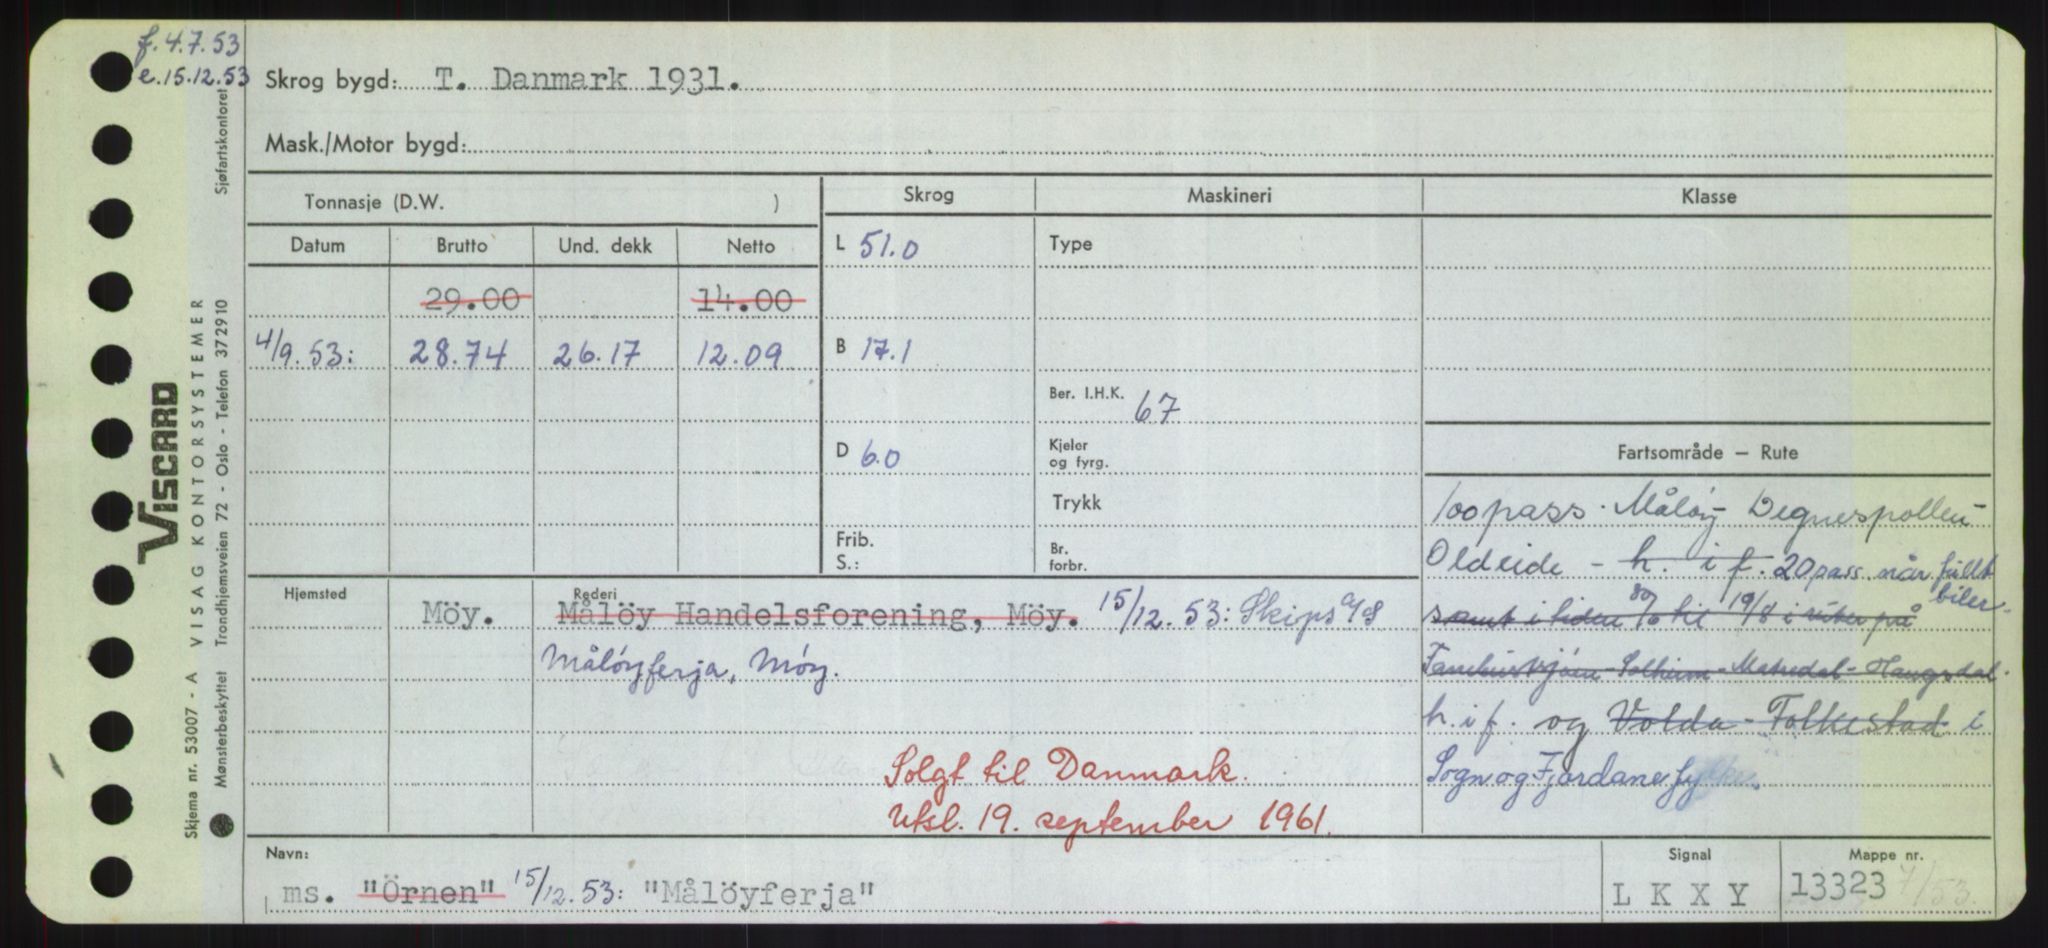 f. 4.7.53
e. 15.12.53
Skrog bygd: T. Danmark 1931.
Mask./Motor bygd:
Tonnasje (D.W. )
Skrog
Maskineri
Klasse
Datum Brutto Und. dekk Netto
L 51.0
Type
29.00 14.00
4/9.53: 28.74 26.17 12.09
B 17.1
Ber. I.H.K. 67
Fartsområde — Rute
D 6.0
Kjeler
og fyrg.
Trykk
Frib.
S.:
Br.
forbr.
100 pass. Målöy Degnespollen -
Oldeide - h. i f. 20 pass. når fullt
biler.
samt i tiden til 19/8 i ruten på
Solheim - Matredal - Haugsdal.
h. i f. og Volda - Folkestad i
Sogn og Fjordane fylke.
Hjemsted
Rederi
Möy. Målöy Handelsforening, Möy. 15/12.53: Skips a/s
Målöyferja, Möy.
Solgt til Danmark.
Utsl. 19. september 1961.
Navn:
ms. "Örnen" 15/12.53: "Målöyferja"
Signal
L K X Y
Mappe nr.
13323 7/53.
Sjøfartskontoret
Viscard
VISAG KONTORSYSTEMER
Skjema nr. 53007 - A
Mønsterbeskyttet Trondhjemsveien 72 - Oslo - Telefon 372910